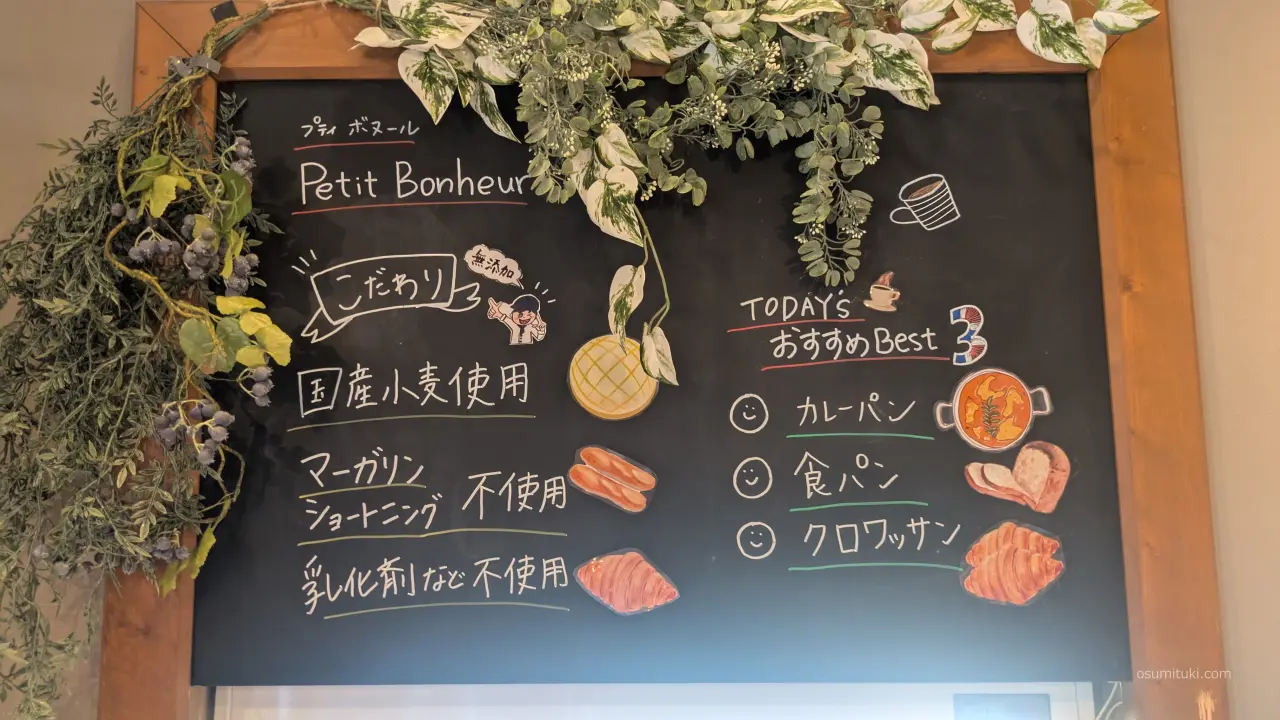 プティ ボヌール
Petit Bonheur
こだわり
無添加
国産小麦使用
マーガリン
ショートニング 不使用
乳化剤など不使用
TODAY's
おすすめBest 3
カレーパン
食パン
クロワッサン
osumituki.com